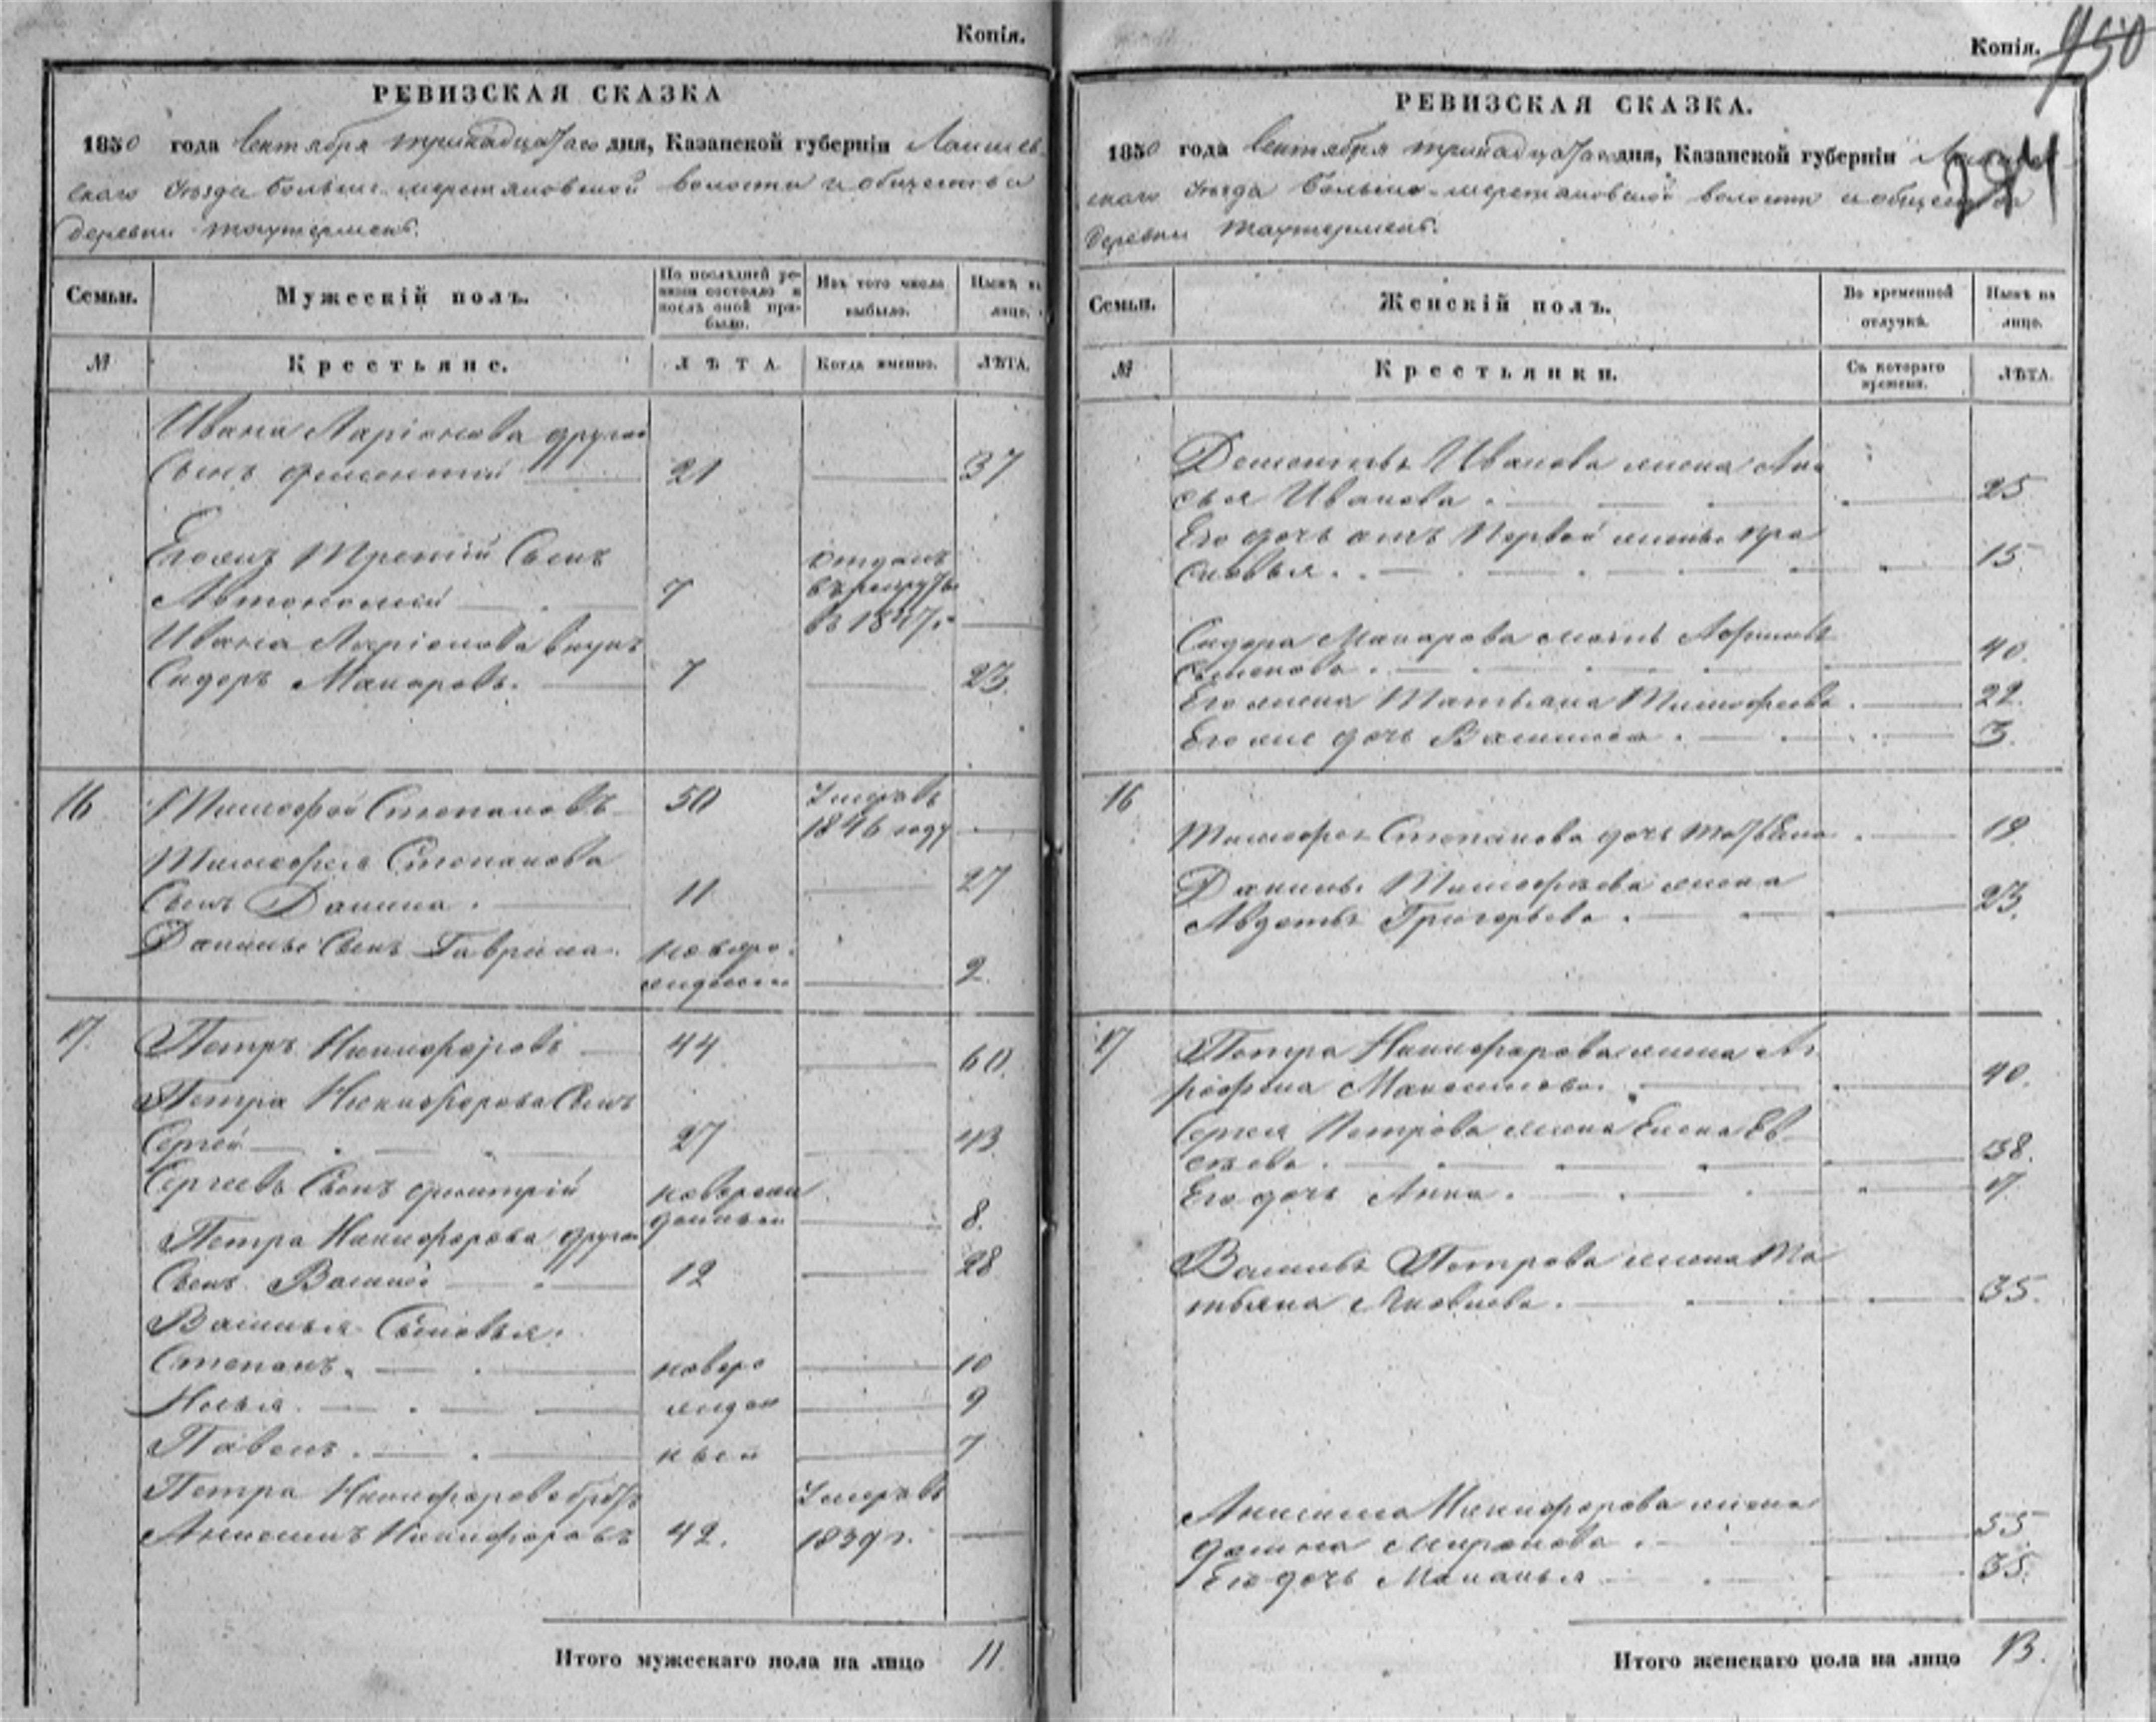 Копія.
РЕВИЗСКАЯ СКАЗКА
1850 года Сентября тринадцатаго дня, Казанской губерніи Лаишев-
скаго Уѣзда Больше- волости и общества
деревни Таутермень.
Семьи.
Мужескій полъ.
По послѣдней ре-
визіи состояло и
послѣ оной при-
было.
Изъ того числа
выбыло.
Нынѣ на
лицо.
№
Крестьяне.
ЛѢТА.
Когда именно.
ЛѢТА.
Ивана Ларіонова другой
Сынъ Дементій 21 37
Егожъ Третій Сынъ
Автономій 7
отданъ
въ рекруты
въ 1847 г.
Ивана Ларіонова внукъ
Сидоръ Макаровъ. 7 23.
16 Тимофей Степановъ 50
Умеръ въ
1846 году
Тимофея Степанова
Сынъ Данила. 11 27
Данилы Сынъ Гаврила.
новоро-
жденный 2
17. Петръ Никифоровъ 44 60.
Петра Никифорова Сынъ
Сергей 27 43.
Сергеевъ Сынъ Дмитрій новорож
денный 8.
Петра Никифорова другой
Сынъ Василій 12 28
Василья Сыновья.
Степанъ. новоро 10
Илья. жден 9
Павелъ. ные 7
Петра Никифорова братъ
Анисимъ Никифоровъ 42.
Умеръ въ
1839 г.
Итого мужескаго пола на лицо 11
Копія. 950
294
РЕВИЗСКАЯ СКАЗКА.
1850 года Сентября тринадцатаго дня, Казанской губерніи Лаишев-
скаго Уѣзда Больше- волости и общества
деревни Таутермень.
Семьи.
Женскій полъ.
Во временной
отлучкѣ.
Нынѣ на
лицо.
№
Крестьянки.
Съ котораго
времени.
ЛѢТА.
Дементья Иванова жена Ани
сья Иванова. 25
Его дочь отъ Первой жены Пра
сковья. 15.
Сидора Макарова мать Афимья
Семенова. 40.
Его жена Татьяна Тимофеева. 22.
Его же дочь Василиса. 3.
16
Тимофея Степанова дочь Татьяна. 19.
Данилы Тимофеева жена
Авдотья Григорьева. 23.
17 Петра Никифорова жена Аг
рофена Максимова. 40.
Сергея Петрова жена Елена Ев
сеева. 38.
Его дочь Анна. 17.
Василья Петрова жена Та
тьяна Яковлева. 35.
Анисима Никифорова жена
Домна Миронова. 55
Его дочь Маланья 35.
Итого женскаго пола на лицо 13.